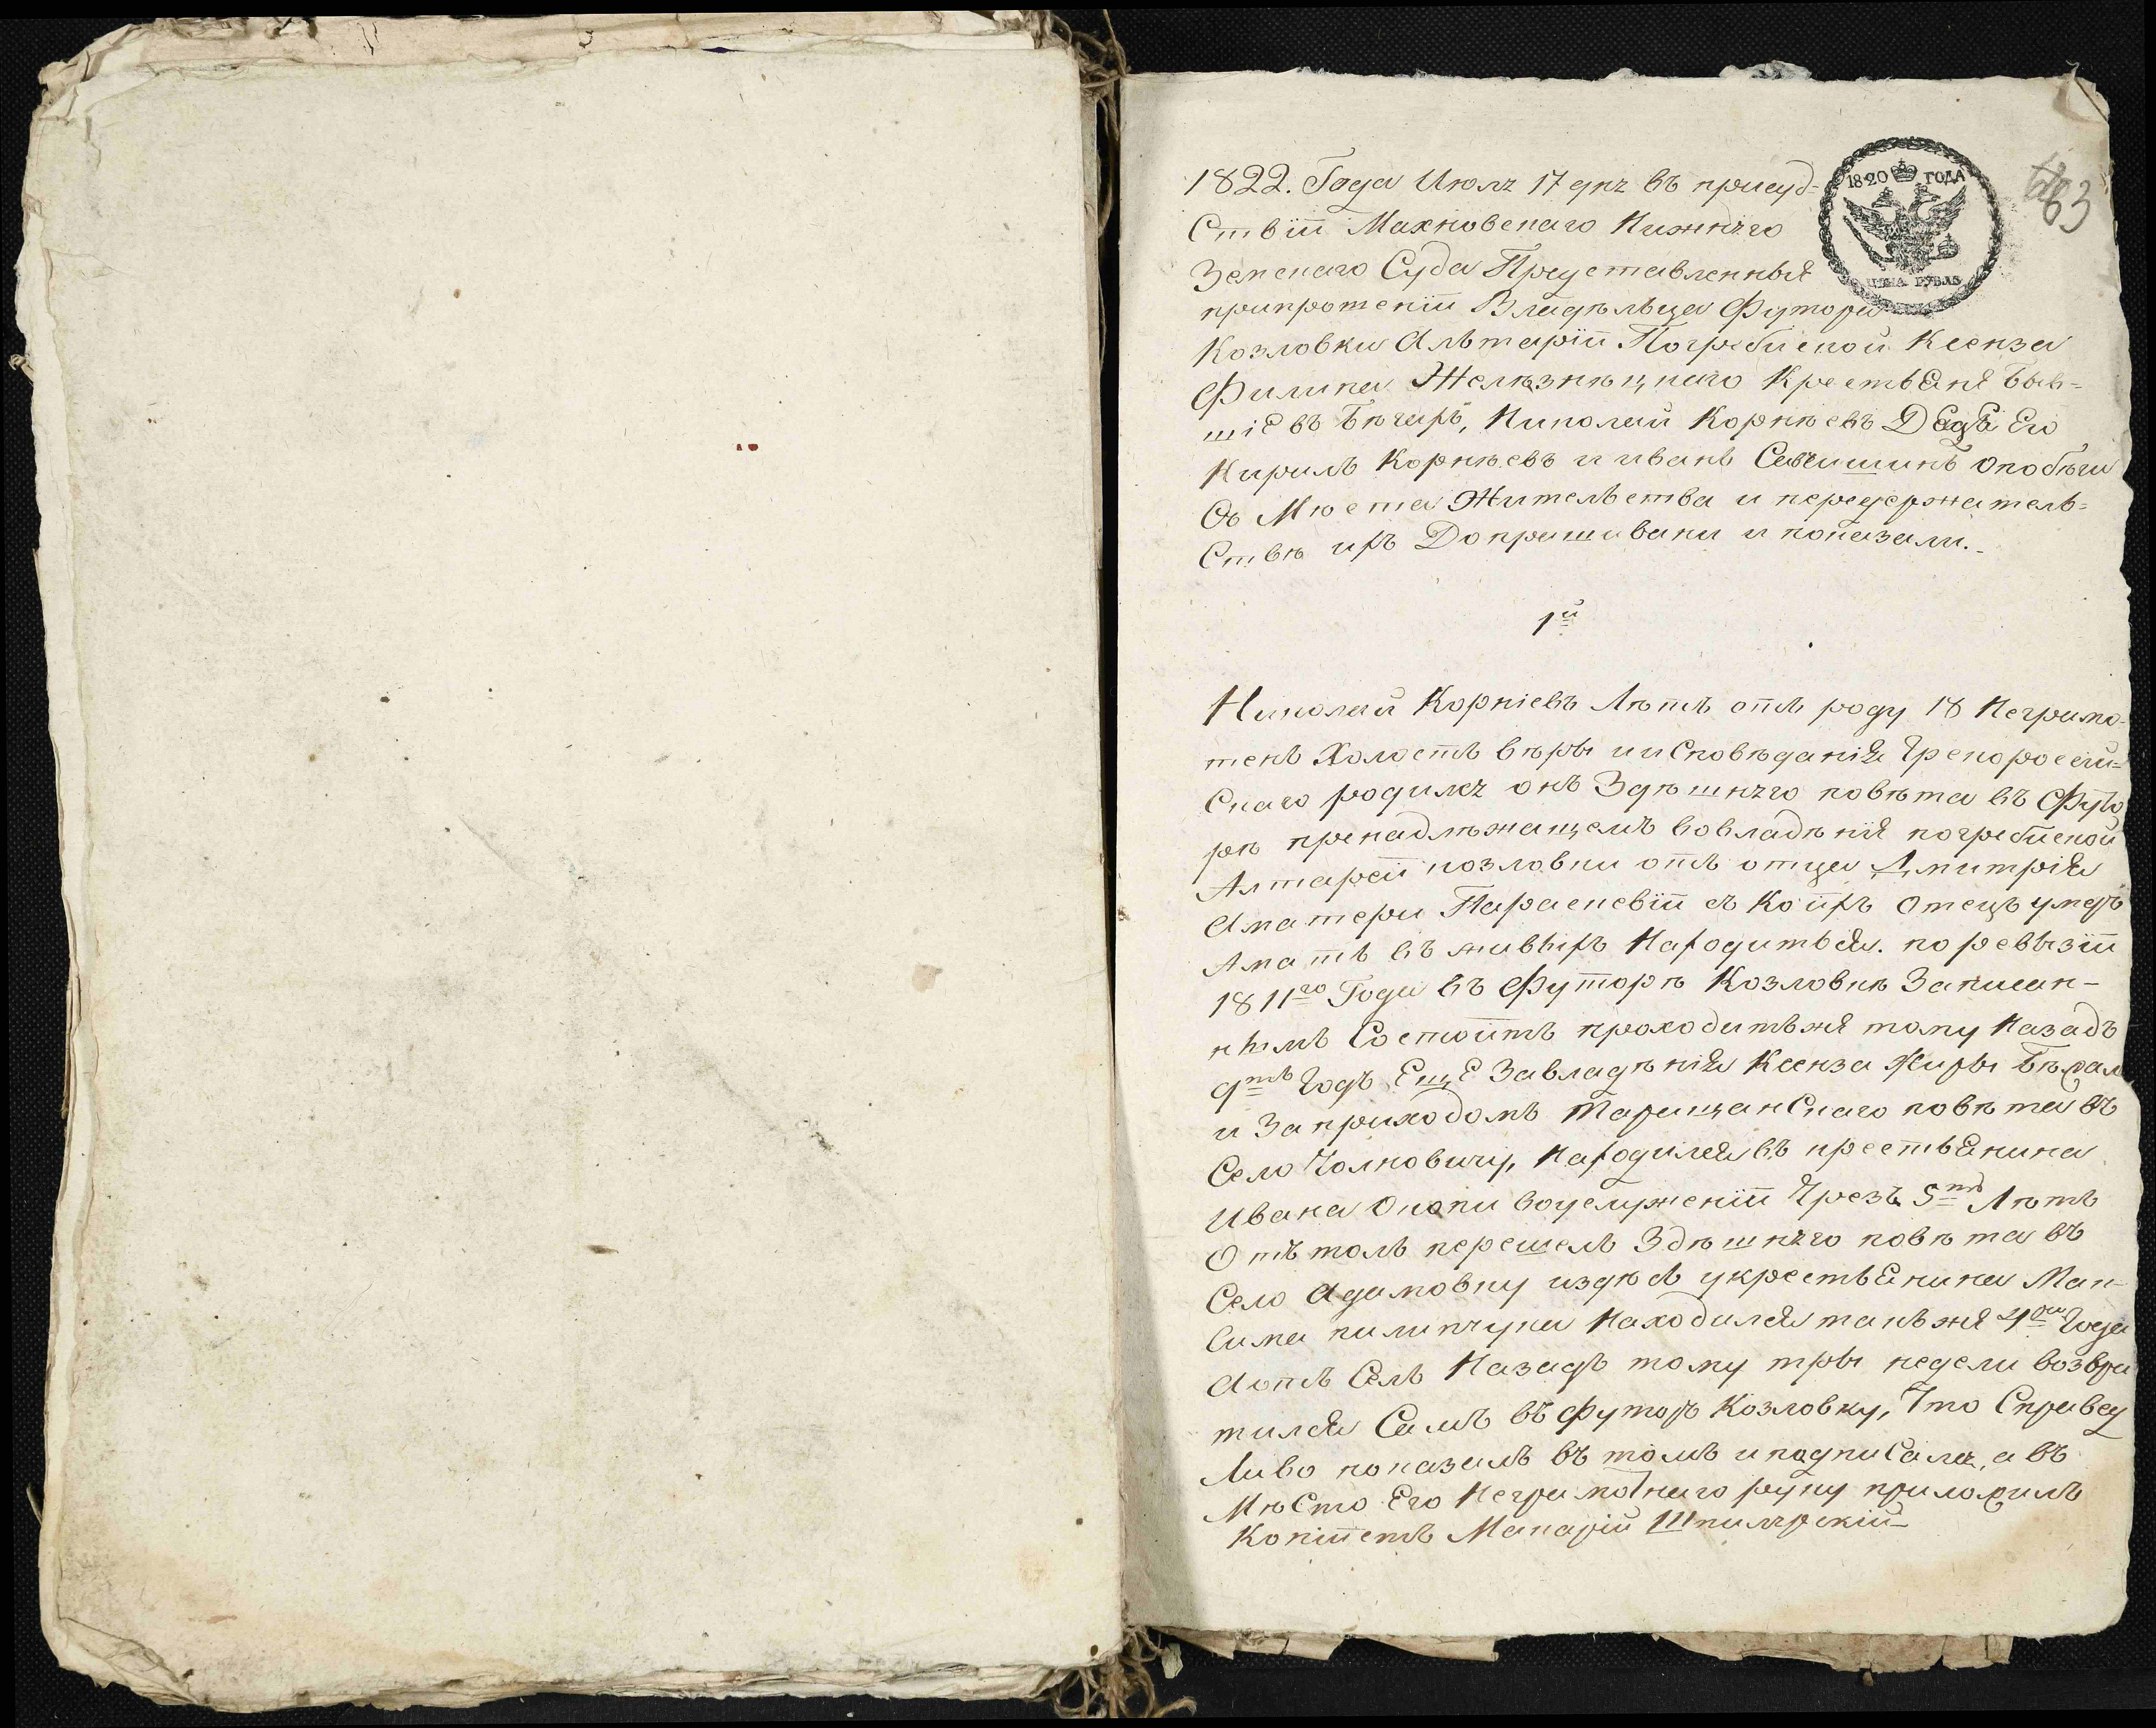 1820 ГОДА
ЦѢНА РУБЛЬ
83
1822. Года Июля 17 дня въ присуд-
Ствіи Махновскаго Нижняго
Земскаго Суда Представленныя
припрошеніи Владѣльца Футора
Козловки Альтаріи Погребиской Ксенза
Филипа Желѣзнѣцкаго Крестьяня Быв-
шіе въ Бѣгахъ, Николай Корнѣевъ Его
Кирилъ Корнѣевъ и иванъ Савчишинъ опобѣги
Съ Мѣста Жительства и передержатель-
Ствѣ ихъ Допрашивани и показали.
1й
Николай Корніевъ Лѣтъ отъ роду 18 Неграмо-
тенъ Холостъ вѣры и исповѣданія Грекороссій-
Скаго родился онъ Здѣшняго повѣта въ Футо
рѣ принадлѣжащемъ вовладѣнія погребиской
Алтареи козловки отъ отца Дмитрія
Аматери Параскевіи съ Коихъ Отецъ умеръ
Амать въ живыхъ Находиться. по ревызіи
1811го Года въ Футорѣ Козловкѣ Записан-
нымъ Состоитъ проходитъжя тому Назадъ
9тъ Годъ Еще Завладѣнія Ксенза Жиры Бѣжал
и Заприходомъ Таращанскаго повѣта въ
Село Чолновичу, Находился въ крестьянина
Ивана Окопи воуслуженіи Чрезъ 5ть Лѣтъ
Отътоль перешелъ Здѣшняго повѣта въ
Село Адамовку издѣсь укрестьянина Мак-
Сима пилипчука Находился такъжя 4ри Года
Аотъ Сель Назадъ тому тры недели возвра
тился Самъ въ Футоръ Козловку, Что Справед
Ливо показалъ въ томъ и подписался, а въ
Мѣсто Его Неграмотнаго руку приложилъ
Копіистъ Макарій Шпилярскій